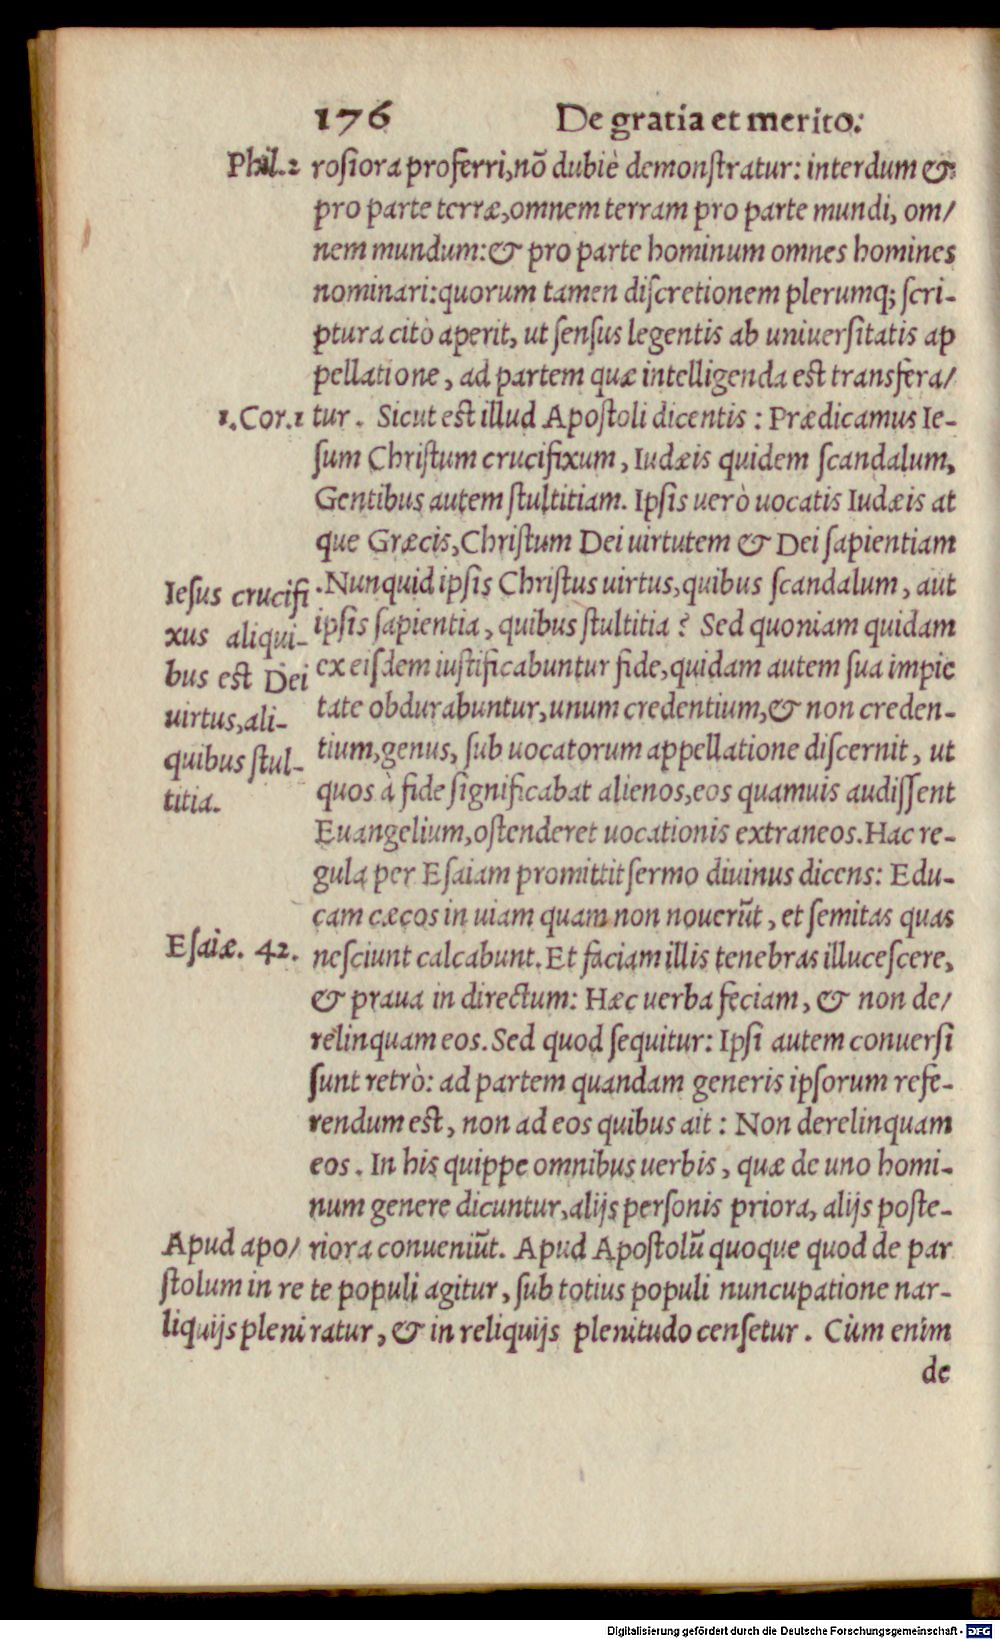 176 De gratia et merito.
Phil. 2 rosiora proferri, nõ dubiè demonstratur: interdum &
pro parte terræ, omnem terram pro parte mundi, om/
nem mundum: & pro parte hominum omnes homines
nominari: quorum tamen discretionem plerumq; scri-
ptura citò aperit, ut sensus legentis ab uniuersitatis ap
pellatione, ad partem quæ intelligenda est transfera/
1. Cor. 1 tur. Sicut est illud Apostoli dicentis: Prædicamus Ie-
sum Christum crucifixum, Iudæis quidem scandalum,
Gentibus autem stultitiam. Ipsis uerò uocatis Iudæis at
que Græcis, Christum Dei uirtutem & Dei sapientiam
. Nunquid ipsis Christus uirtus, quibus scandalum, aut
ipsis sapientia, quibus stultitia? Sed quoniam quidam
ex eisdem iustificabuntur fide, quidam autem sua impie
tate obdurabuntur, unum credentium, & non creden-
tium, genus, sub uocatorum appellatione discernit, ut
quos à fide significabat alienos, eos quamuis audissent
Euangelium, ostenderet uocationis extraneos. Hac re-
gula per Esaiam promittit sermo diuinus dicens: Edu-
cam cæcos in uiam quam non nouerũt, et semitas quas
nesciunt calcabunt. Et faciam illis tenebras illucescere,
& praua in directum: Hæc uerba feciam, & non de/
relinquam eos. Sed quod sequitur: Ipsi autem conuersi
sunt retrò: ad partem quandam generis ipsorum refe-
rendum est, non ad eos quibus ait: Non derelinquam
eos. In his quippe omnibus uerbis, quæ de uno homi-
num genere dicuntur, alijs personis priora, alijs poste-
riora conueniũt. Apud Apostolũ quoque quod de par
te populi agitur, sub totius populi nuncupatione nar-
ratur, & in reliquijs plenitudo censetur. Cùm enim
de
Iesus crucifi
xus aliqui-
bus est Dei
uirtus, ali-
quibus stul-
titia.
Esaiæ. 42.
Apud apo/
stolum in re
liquijs pleni
Digitalisierung gefördert durch die Deutsche Forschungsgemeinschaft - DFG